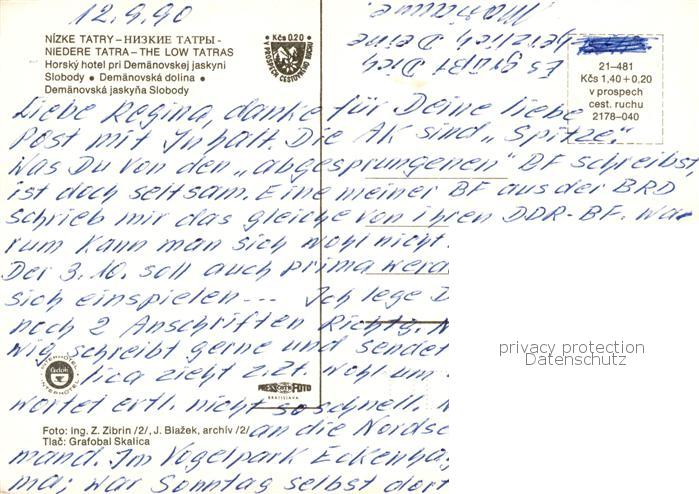 12.9.90
Marianne.
herzlichst
Es grüßt Dich
Deine
NÍZKE TATRY – НИЗКИЕ ТАТРЫ -
NIEDERE TATRA – THE LOW TATRAS
Horský hotel pri Demänovskej jaskyni
Slobody • Demänovská dolina •
Demänovská jaskyňa Slobody
Kčs 0.20
V PROSPECH CESTOVNÉHO RUCHU
21–481
Kčs 1,40+0,20
v prospech
cest. ruchu
2178–040
Liebe Regina, danke für Deine liebe
Post mit Inhalt. Die AK sind „Spitze".
Was Du von den „abgesprungenen" BF schreibst,
ist doch seltsam. Eine meiner BF aus der BRD
schrieb mir das gleiche von ihren DDR-BF. Wa-
rum kann man sich wohl nicht
Der 3.10. soll auch prima
sich einspielen... Ich lege
noch 2 Anschriften Richtg.
wig schreibt gerne und sendet
lica zieht z.Zt. wohl um
wortet ertl. nicht so schnell.
an die
mand. Im Vogelpark
ma; war Sonntag selbst dort
INTERHOTEL
čedok
INTERHOTEL
PRESSFOTO
BRATISLAVA
Foto: Ing. Z. Zibrin /2/, J. Blažek, archív /2/
Tlač: Grafobal Skalica
privacy protection
Datenschutz